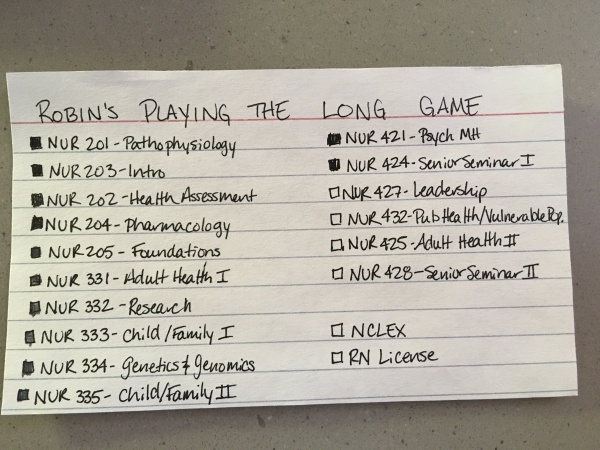 ROBIN'S PLAYING THE LONG GAME
NUR 201 - Pathophysiology
NUR 203 - Intro
NUR 202 - Health Assessment
NUR 204 - Pharmacology
NUR 205 - Foundations
NUR 331 - Adult Health I
NUR 332 - Research
NUR 333 - Child/Family I
NUR 334 - Genetics & Genomics
NUR 335 - Child/Family II
NUR 421 - Psych MH
NUR 424 - Senior Seminar I
NUR 427 - Leadership
NUR 432 - Pub Health/Vulnerable Pop.
NUR 425 - Adult Health II
NUR 428 - Senior Seminar II
NCLEX
RN License